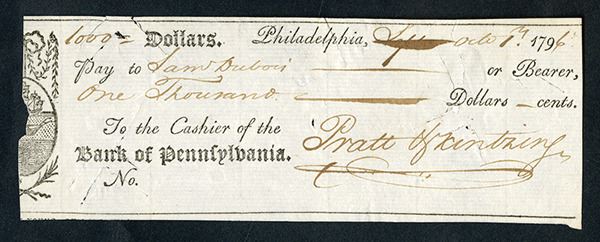 1000 = Dollars. Philadelphia, Octo 1st 1796
Pay to Sam¹ Dubois or Bearer,
One Thousand Dollars – cents.
To the Cashier of the
Bank of Pennſylvania.
No.
Pratt & Kintzing